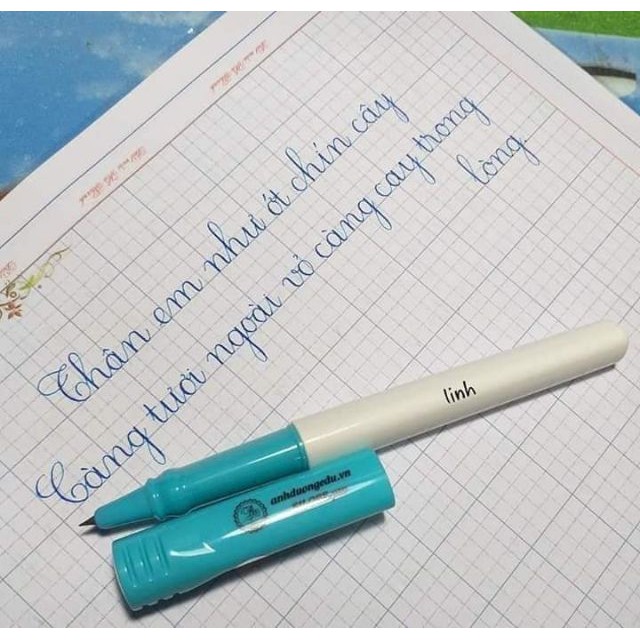 Thân em như ớt chín cây
Càng tươi ngoài vỏ càng cay trong
lòng
linh
anhduongedu.vn